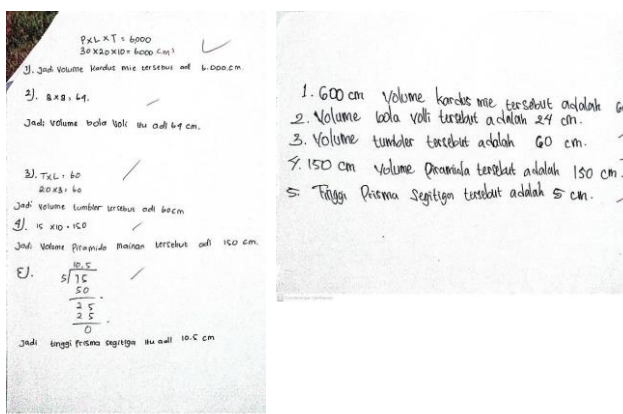 PXLXT = 6000
30X20X10 = 6000 cm³
1). Jadi Volume Kardus mie tersebut adl 6.000.cm.
2). 8x8 = 64.
Jadi Volume bola Voli itu adl 64 cm.
3). TXL = 60
20x3 = 60
Jadi volume tumbler tersebut adl 60cm
4). 15 x10 = 150
Jadi Volume Piramida mainan tersebut adl 150 cm.
5).
10.5
5/75
50
25
25
0
Jadi tinggi Prisma segitiga itu adl 10.5 cm
1. 600 cm Volume kardus mie tersebut adalah
2. Volume bola volli tersebut adalah 24 cm.
3. Volume tumbler tersebut adalah 60 cm.
4. 150 cm Volume Piramida tersebut adalah 150 cm.
5. Tinggi Prisma Segitiga tersebut adalah 5 cm.